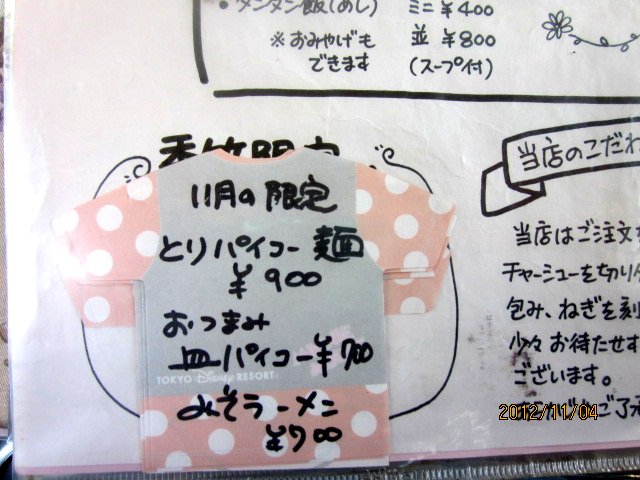 タンタン飯(めし) ミニ ¥400
※おみやげも 並 ¥800
できます (スープ付)
季節限定
11月の限定
とりパイコー麺
¥900
おつまみ
皿パイコー ¥700
TOKYO Disney RESORT
みそラーメン
¥700
当店のこだわ
当店はご注文
チャーシューを切り
包み、ねぎを刻
少々お待たせす
ございます。
ご了
2012/11/04